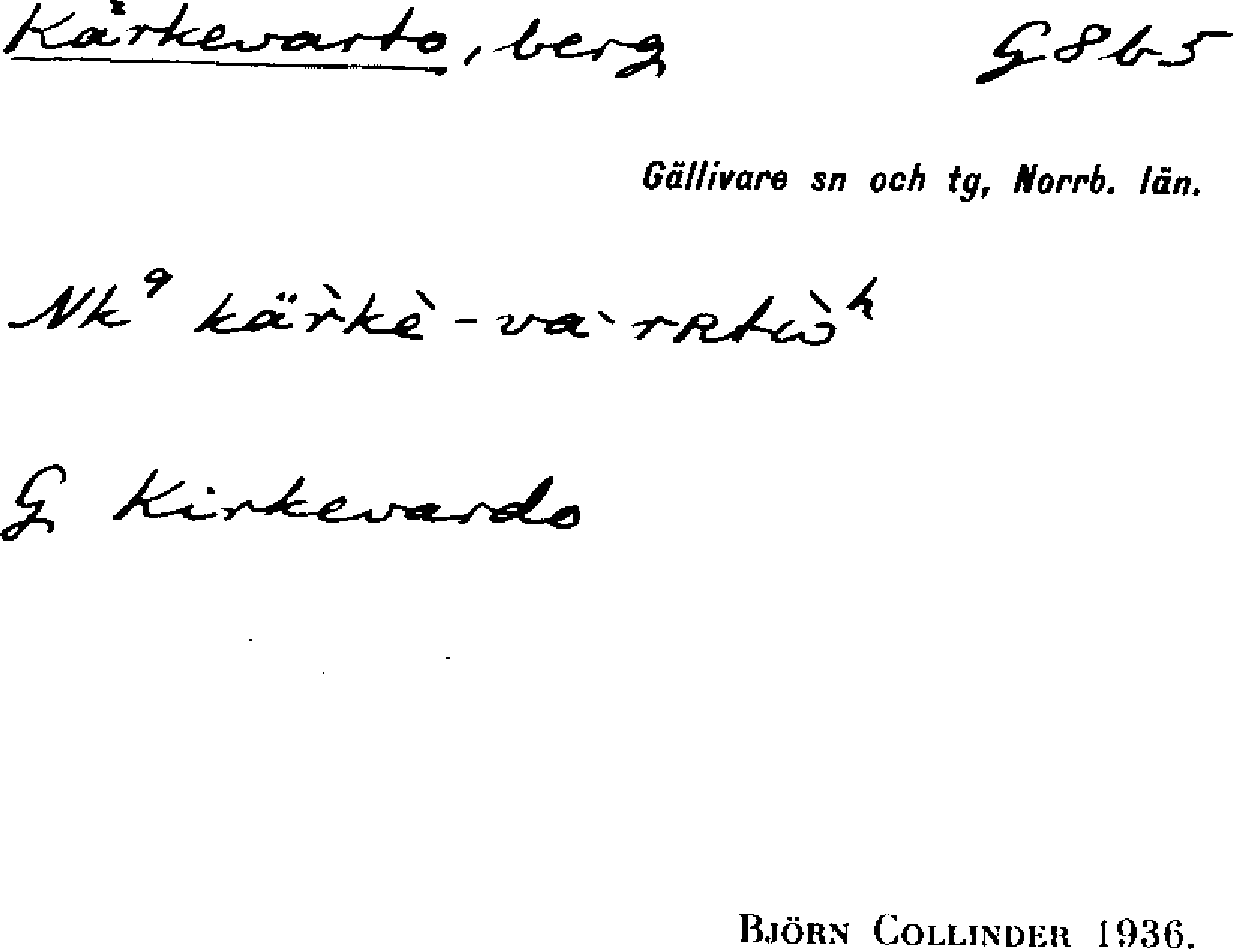 Kärkevarto, berg G8b5
Gällivare sn och tg, Norrb. län.
Nk⁹ kär̀kè - va`rRtὼʰ
G Kirkevardo
BJÖRN COLLINDER 1936.